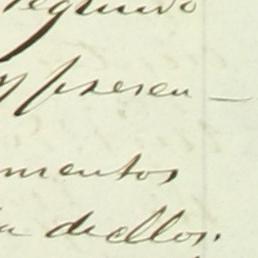 segundo
y presen-
mentos
dellos.